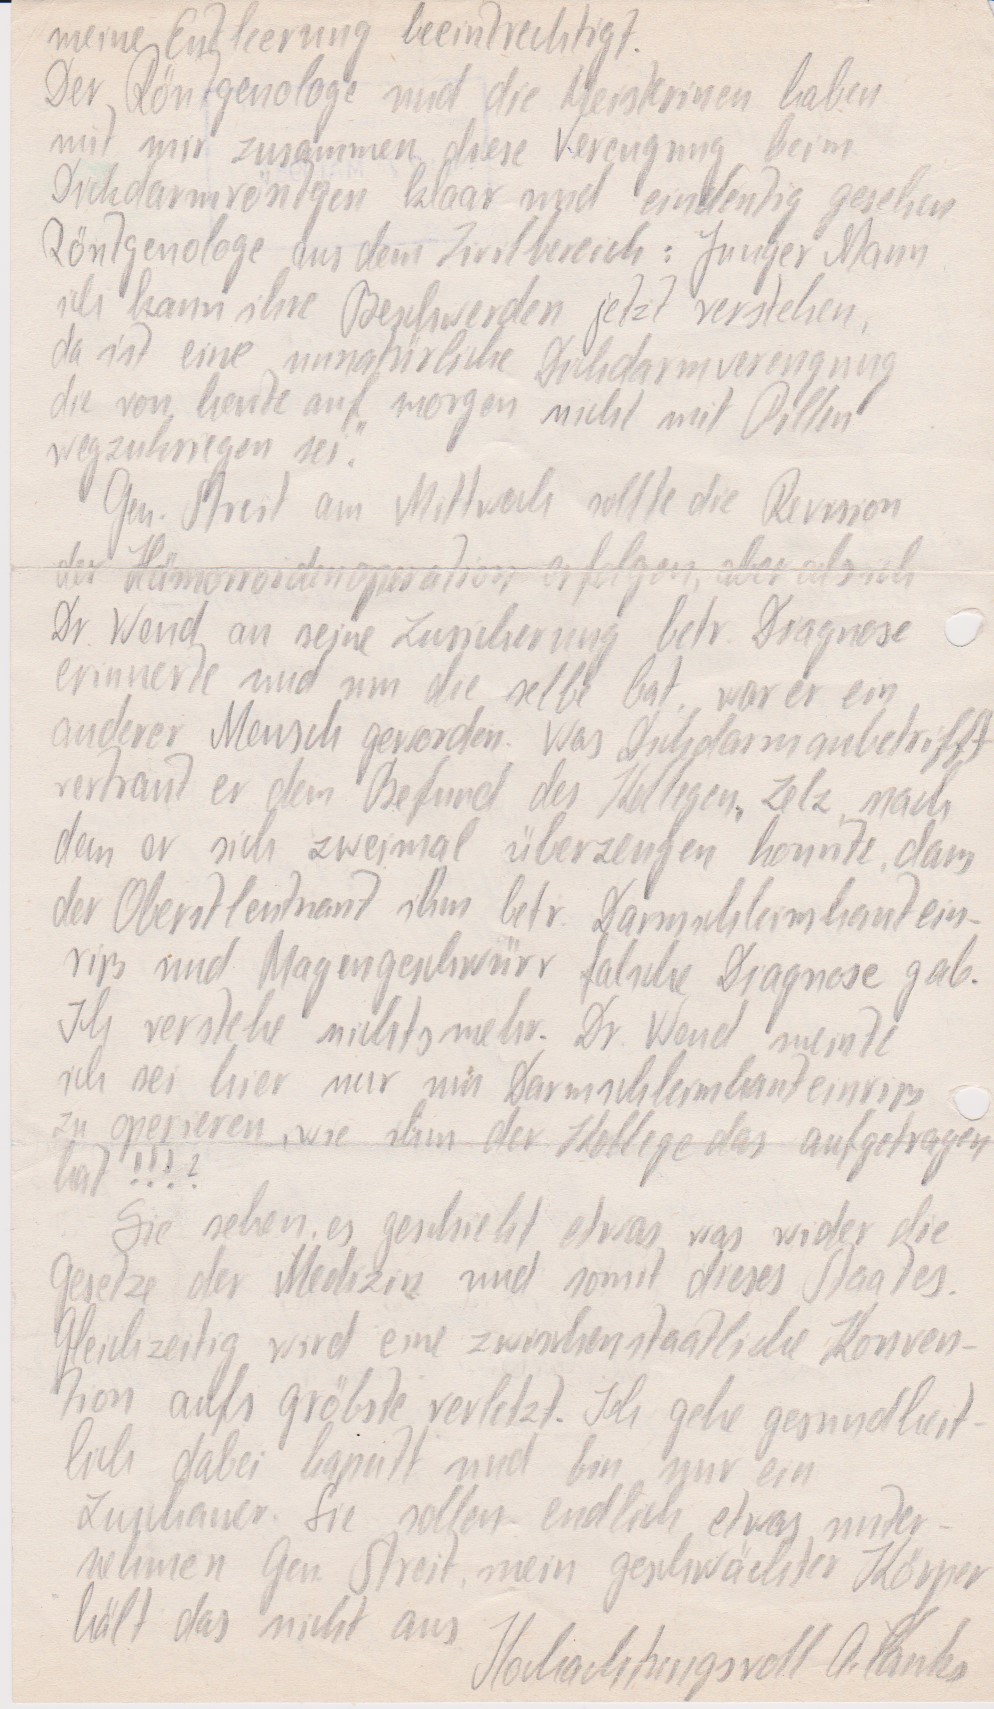 meine Entleerung beeintrechtigt.
Der Röntgenologe und die Meisterinen haben
mit mir zusammen diese Verengung beim
Dickdarmröntgen klaar und eindeutig gesehen
Röntgenologe aus dem Zivilbereich: Junger Mann
ich kann ihre Beschwerden jetzt verstehen,
da ist eine unnatürliche Dickdarmverengung
die von heute auf morgen nicht mit Pillen
wegzukriegen sei."
Gen. Streit am Mittwoch sollte die Revision
der Hämorroidenoperation erfolgen, aber als ich
Dr. Wend an seine Zusicherung betr. Diagnose
erinnerte und um die selbe bat, war er ein
anderer Mensch geworden. Was Dickdarm anbetrifft
vertraut er dem Befund des Kollegen Zelz, nach
dem er sich zweimal überzeugen konnte, dass
der Oberstleutnant ihm betr. Darmschleimhautein-
riß und Magengeschwürr falsche Diagnose gab.
Ich verstehe nichts mehr. Dr. Wend meinte
ich sei hier nur um Darmschleimhauteinriss
zu operieren, wie ihm der Kollege das aufgetragen
hat !!!?
Sie sehen, es geschieht etwas was wider die
Gesetze der Medizin und somit dieses Staates.
Gleichzeitig wird eine zwischenstaatliche Konven-
tion aufs gröbste verletzt. Ich gehe gesundheit-
lich dabei kaputt und bin nur ein
Zuschauer. Sie sollen endlich etwas unter-
nehmen Gen. Streit, mein geschwächter Körper
hält das nicht aus
Hochachtungsvoll A.